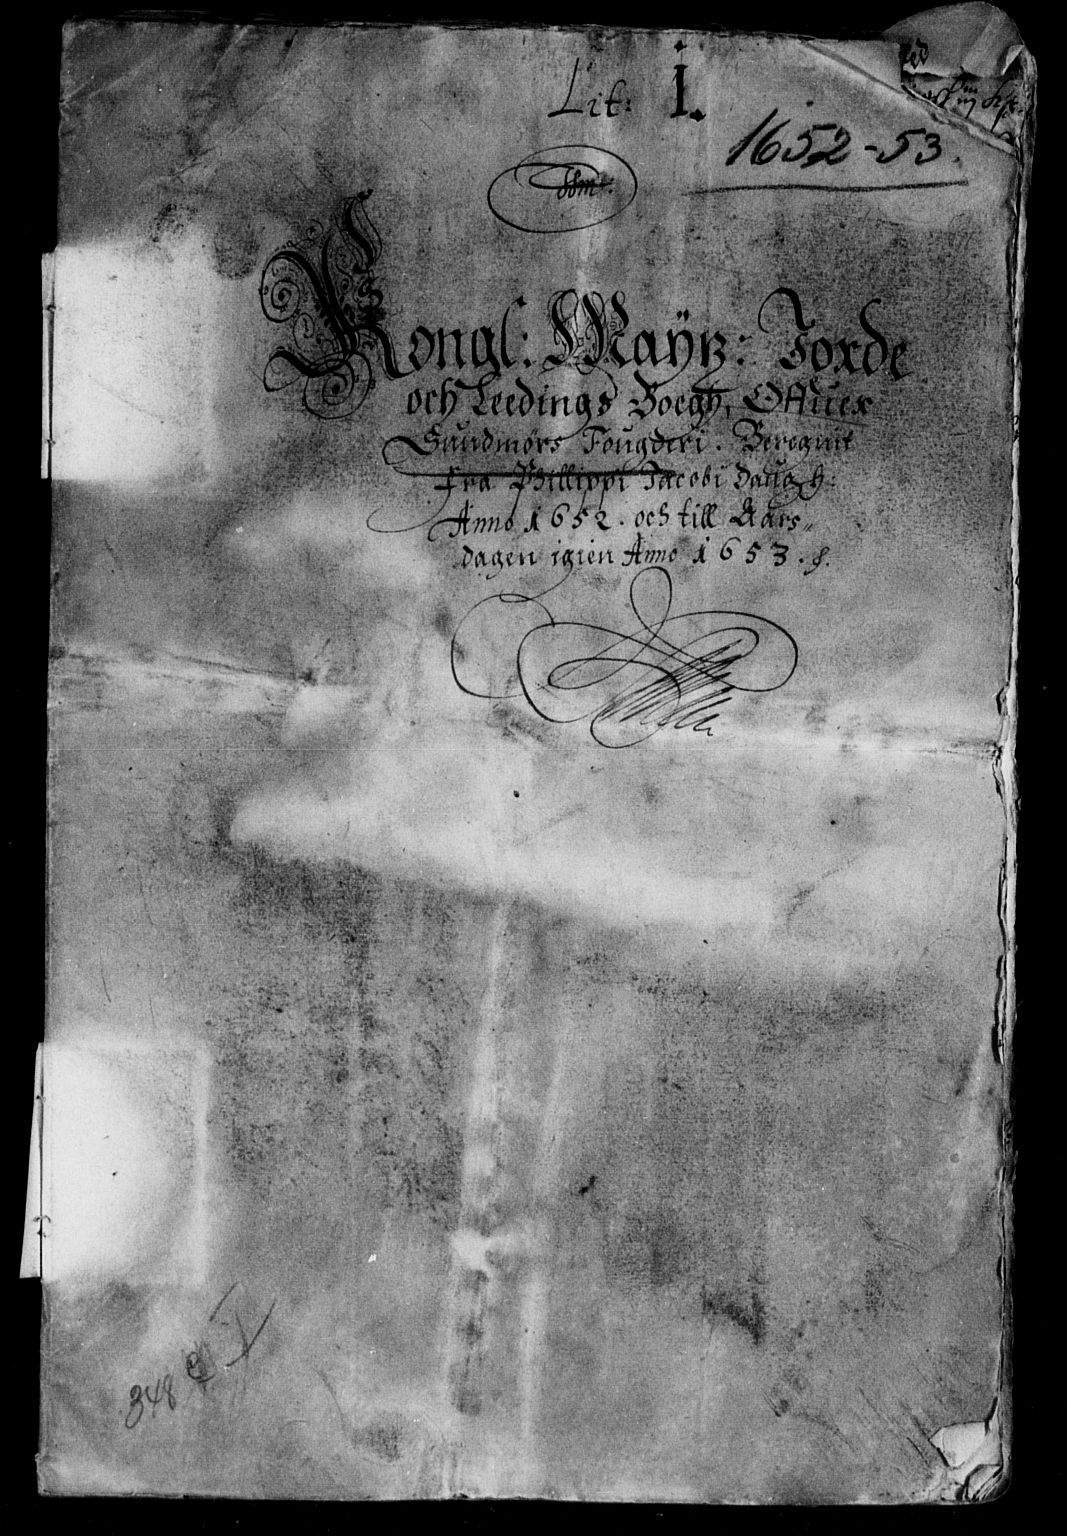 Lit: I.
1652-53.
Kongl: Maÿtz: Jorde
och Leedings Boegh, Offuer
Sundmørs Fougderi. Beregnit
Fra Phillippi Jacobi Daug
Anno 1652. och till Aars-
dagen igien Anno 1653.
348